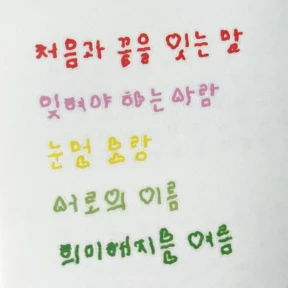 처음과 끝을 잇는 말
잊혀야 하는 사람
눈멂 요람
서로의 이름
희미해지븐 여름